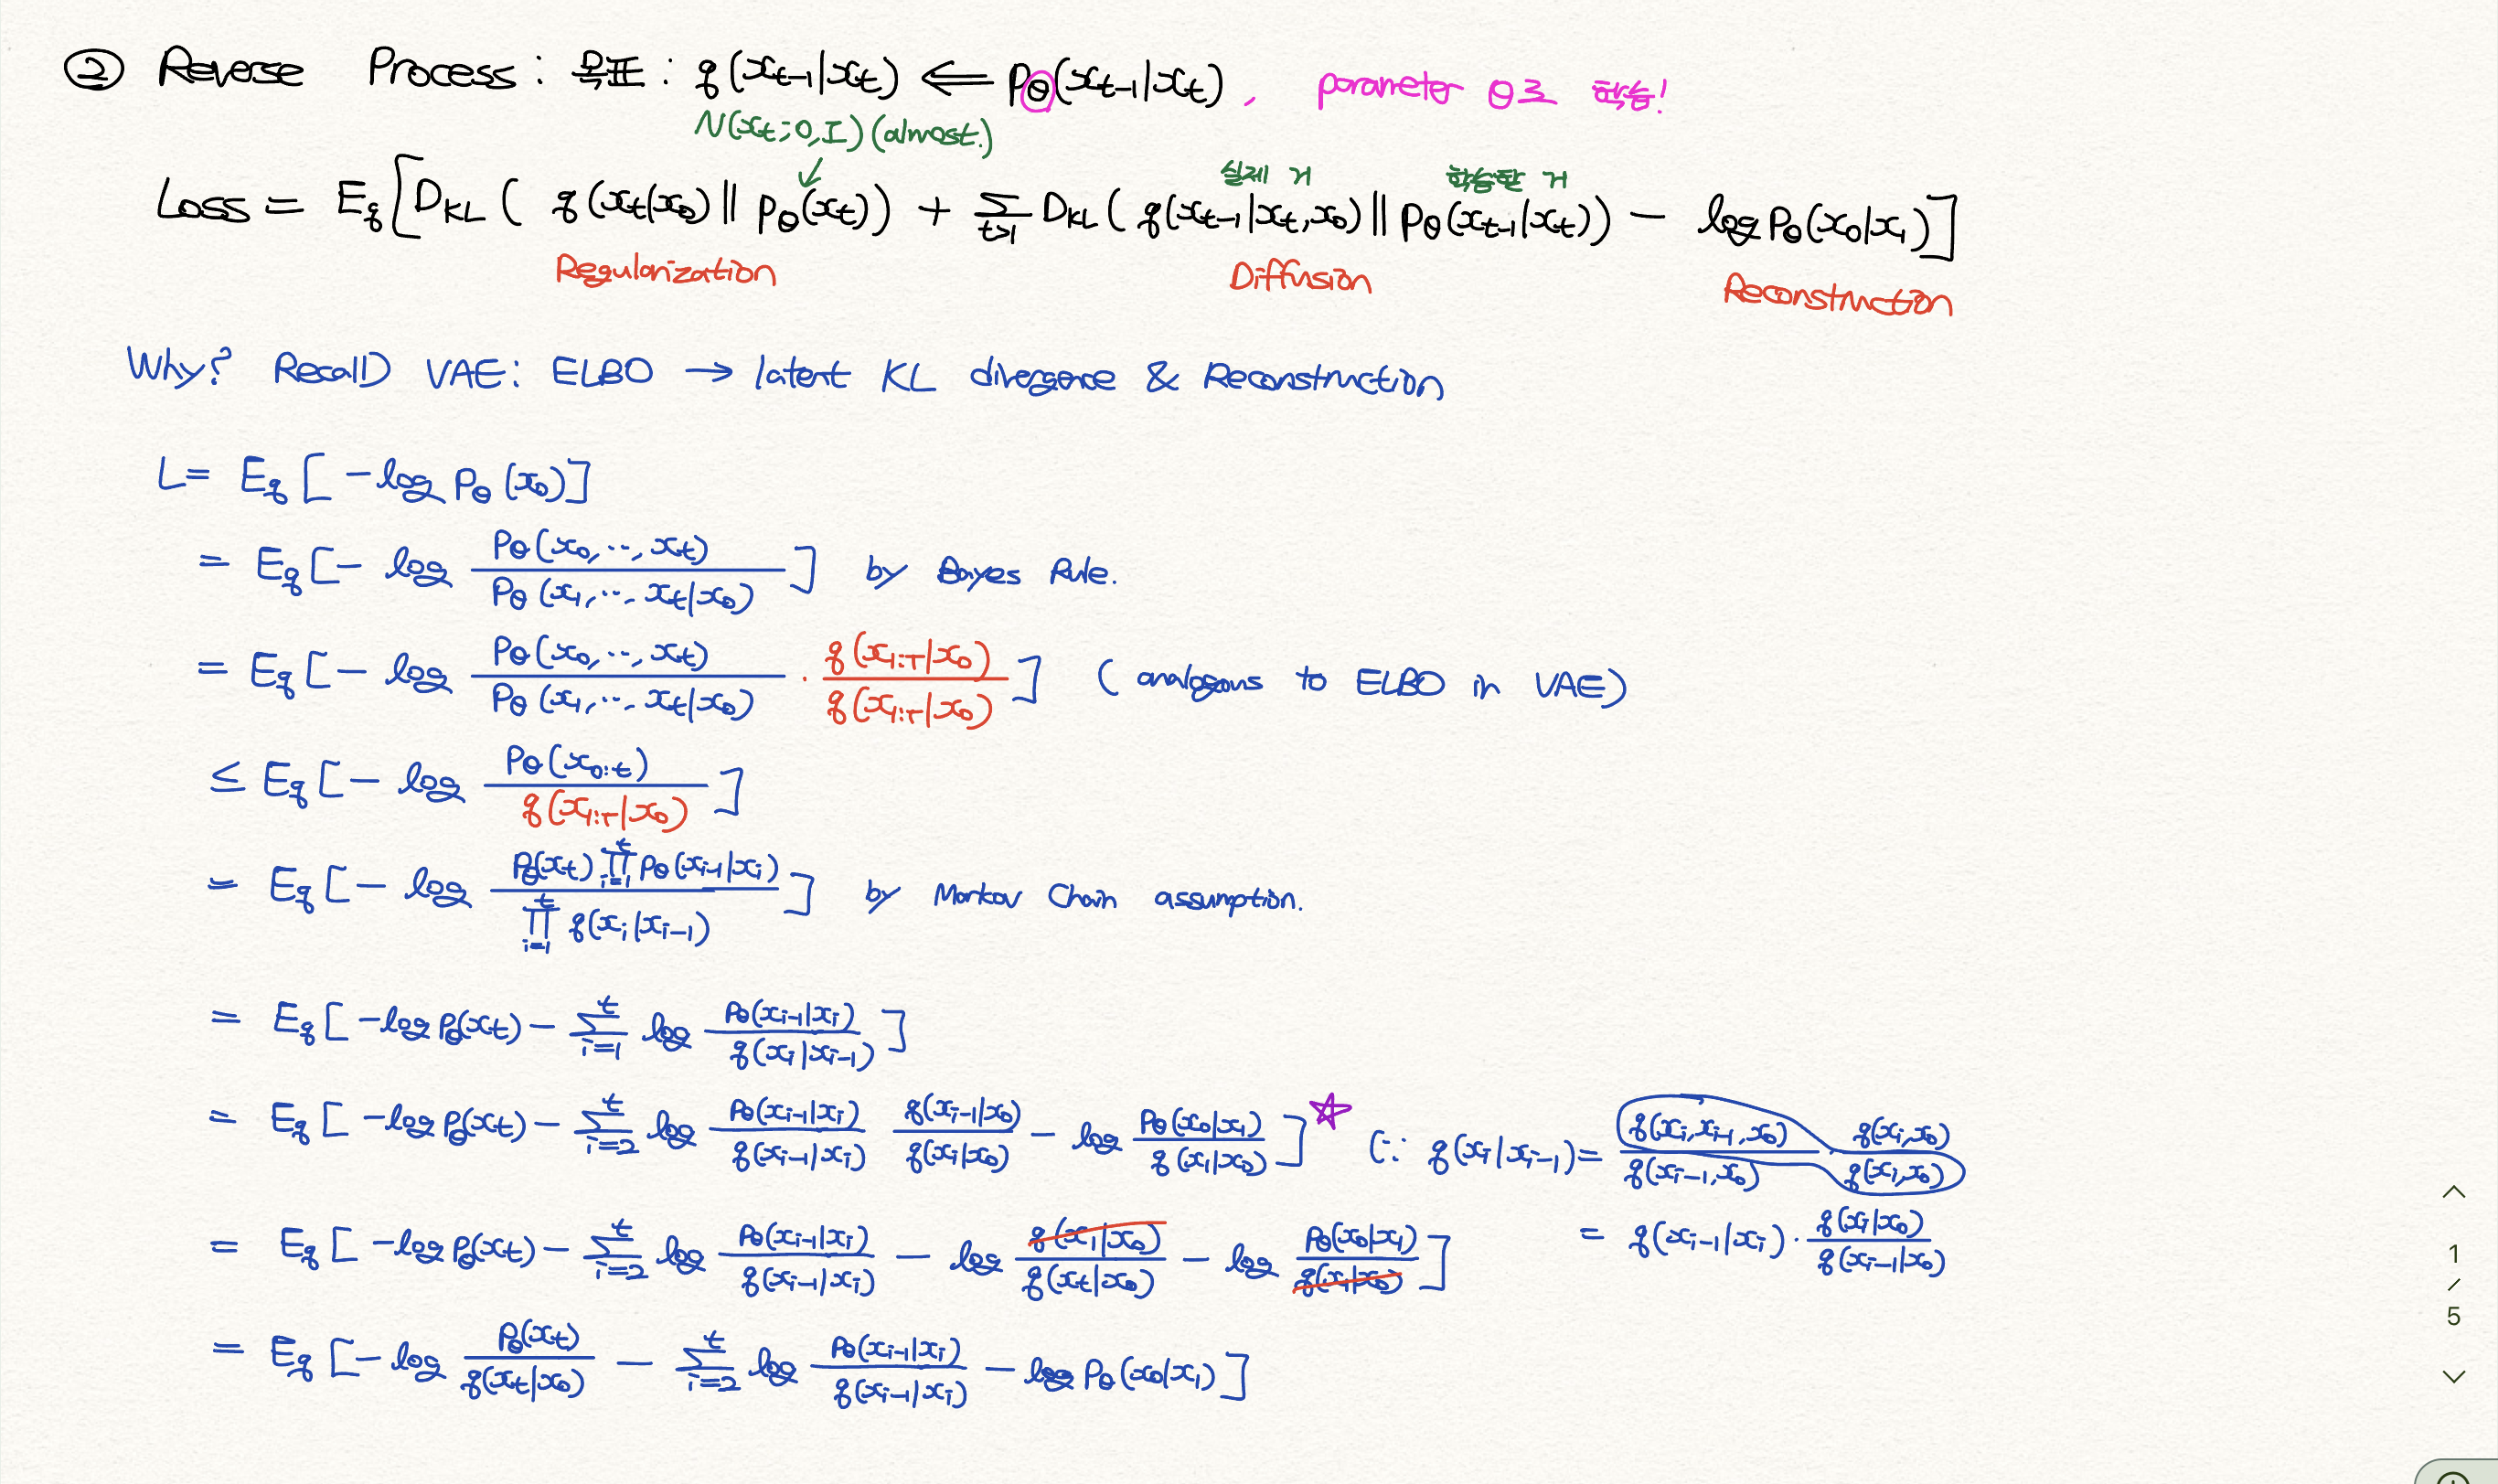 ② Reverse Process : 목표 : q(x_{t-1}|x_t) ⟸ p_θ(x_{t-1}|x_t), parameter θ로 학습!
N(x_t;0,I) (almost.)
실제 거 학습한 거
Loss = E_q[ D_KL( q(x_t|x_0) || p_θ(x_t)) + Σ_{t>1} D_KL( q(x_{t-1}|x_t,x_0) || p_θ(x_{t-1}|x_t)) - log p_θ(x_0|x_1) ]
Regularization Diffusion Reconstruction
Why? Recall) VAE: ELBO → latent KL divergence & Reconstruction
L = E_q [ -log p_θ(x_0) ]
= E_q [ - log p_θ(x_0,…,x_t) / p_θ(x_1,…,x_t|x_0) ] by Bayes Rule.
= E_q [ - log p_θ(x_0,…,x_t) / p_θ(x_1,…,x_t|x_0) · q(x_{1:T}|x_0) / q(x_{1:T}|x_0) ] (analogous to ELBO in VAE)
≤ E_q [ - log p_θ(x_{0:t}) / q(x_{1:T}|x_0) ]
= E_q [ - log p_θ(x_t) ∏_{i=1}^t p_θ(x_{i-1}|x_i) / ∏_{i=1}^t q(x_i|x_{i-1}) ] by Markov Chain assumption.
= E_q [ -log p_θ(x_t) - Σ_{i=1}^t log p_θ(x_{i-1}|x_i) / q(x_i|x_{i-1}) ]
= E_q [ -log p_θ(x_t) - Σ_{i=2}^t log p_θ(x_{i-1}|x_i) / q(x_{i-1}|x_i) q(x_{i-1}|x_0) / q(x_i|x_0) - log p_θ(x_0|x_1) / q(x_1|x_0) ] ☆ (∵ q(x_i|x_{i-1}) = q(x_i,x_{i-1},x_0) / q(x_{i-1},x_0) · q(x_i,x_0) / q(x_i,x_0)
= E_q [ -log p_θ(x_t) - Σ_{i=2}^t log p_θ(x_{i-1}|x_i) / q(x_{i-1}|x_i) - log q(x_1|x_0) / q(x_t|x_0) - log p_θ(x_0|x_1) / q(x_1|x_0) ] = q(x_{i-1}|x_i) · q(x_i|x_0) / q(x_{i-1}|x_0)
= E_q [ - log p_θ(x_t) / q(x_t|x_0) - Σ_{i=2}^t log p_θ(x_{i-1}|x_i) / q(x_{i-1}|x_i) - log p_θ(x_0|x_1) ]
1
/
5